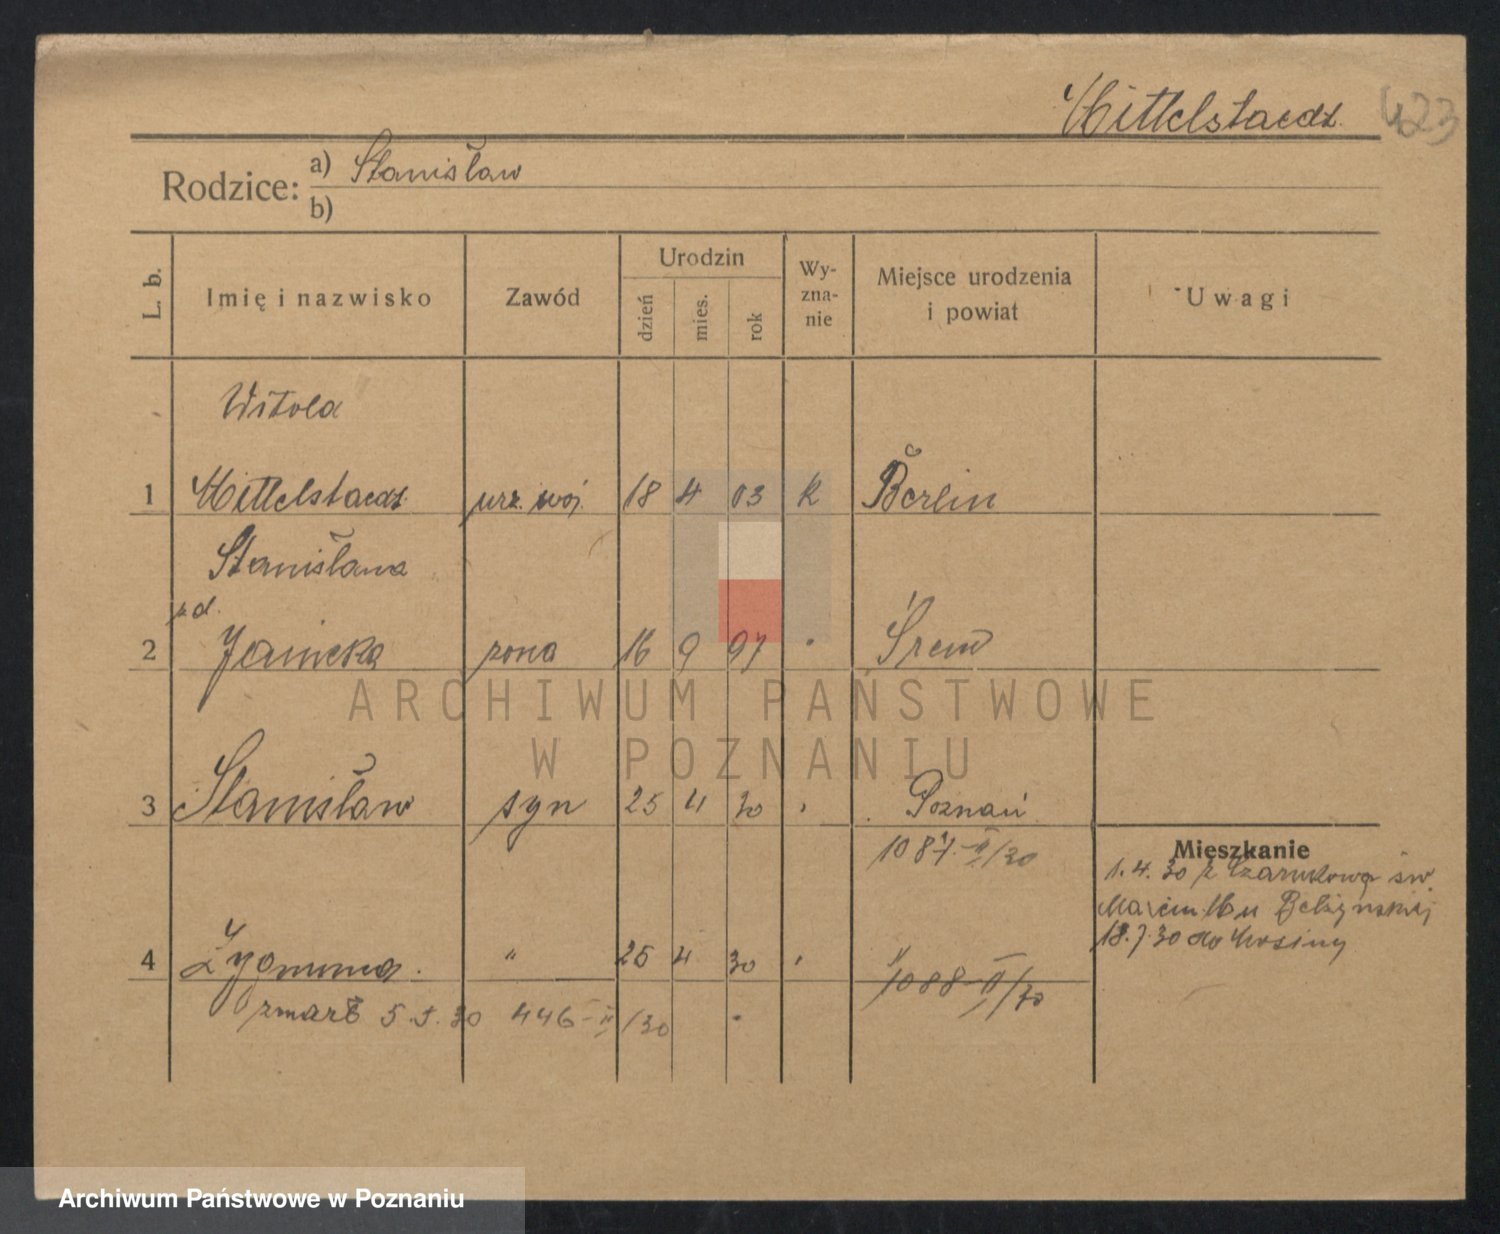 Mittelstaedt. 423
Rodzice: a) Stanisław
b)
L. b. Imię i nazwisko Zawód Urodzin dzień mies. rok Wy-zna-nie Miejsce urodzenia i powiat Uwagi
Witold
1 Mittelstaedt urz. woj. 18 4 03 k Berlin
Stanisława
z d.
2 Janicka żona 16 9 97 " Śrem
ARCHIWUM PAŃSTWOWE
W POZNANIU
3 Stanisław syn 25 4 30 " Poznań
1087-II/30
Mieszkanie
1.4.30 z Czarnkowa św.
Marcin 16 u
18.7.30 do Mosiny
4 Zygmund. " 25 4 30 " "
1088-II/30
zmarł 5.5.30 446-II/30
Archiwum Państwowe w Poznaniu